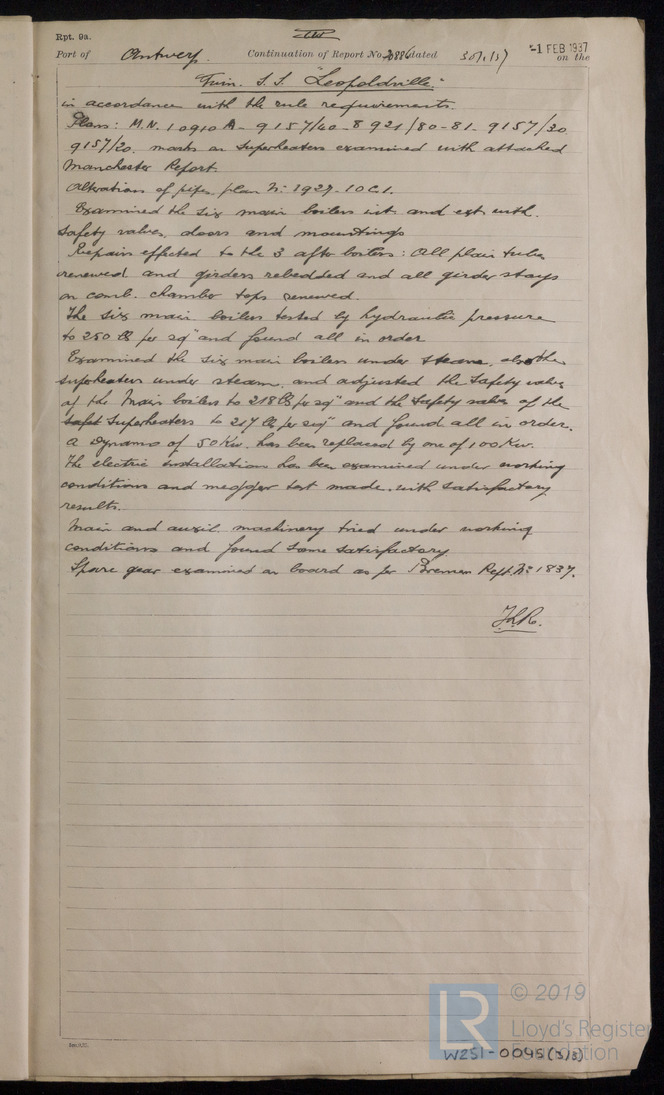 Rpt. 9a.
III
-1 FEB 1937
Port of Antwerp. Continuation of Report No. 20886 dated 30/1/37 on the
Twin. S.S. "Leopoldville"
in accordance with the rule requirements.
Plans: M.N. 10910 A - 9157/40 - 8921/80-81. 9157/30
9157/20. marks on superheaters examined with attached
Manchester Report.
Alterations of pipes, plan No: 1927-10C1.
Examined the six main boilers int. and ext. with.
safety valves, doors and mountings
Repairs effected to the 3 after boilers: All plain tubes
renewed and girders rebedded and all girder stays
on comb. chamber tops renewed.
The six main boilers tested by hydraulic pressure
to 250 lb per sq" and found all in order
Examined the six main boilers under steam, also the
superheaters under steam, and adjusted the safety valves
of the Main boilers to 218 lb per sq" and the safety valves of the
superheaters to 217 lb per sq" and found all in order.
A Dynamo of 50 Kw. has been replaced by one of 100 Kw.
The electric installation has been examined under working
conditions and megger test made, with satisfactory
results.
Main and auxil. machinery tried under working
conditions and found same satisfactory
Spare gear examined on board as per Bremen Rept. No: 1837.
LR
© 2019
Lloyd's Register
Foundation
W251-0045(3/3)